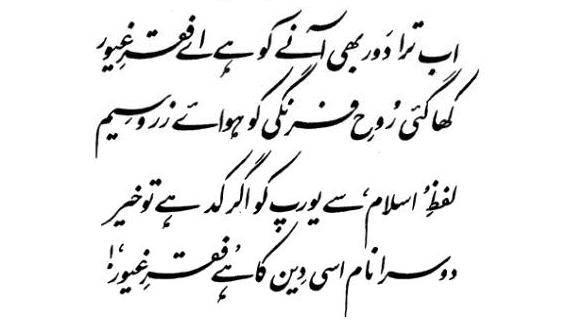 اب ترا دَور بھی آنے کو ہے اے فقرِ غیور
کھا گئی رُوحِ فرنگی کو ہوائے زر و سیم
لفظِ 'اسلام' سے یورپ کو اگر کد ہے تو خیر
دوسرا نام اسی دِین کا ہے 'فقرِ غیور'!